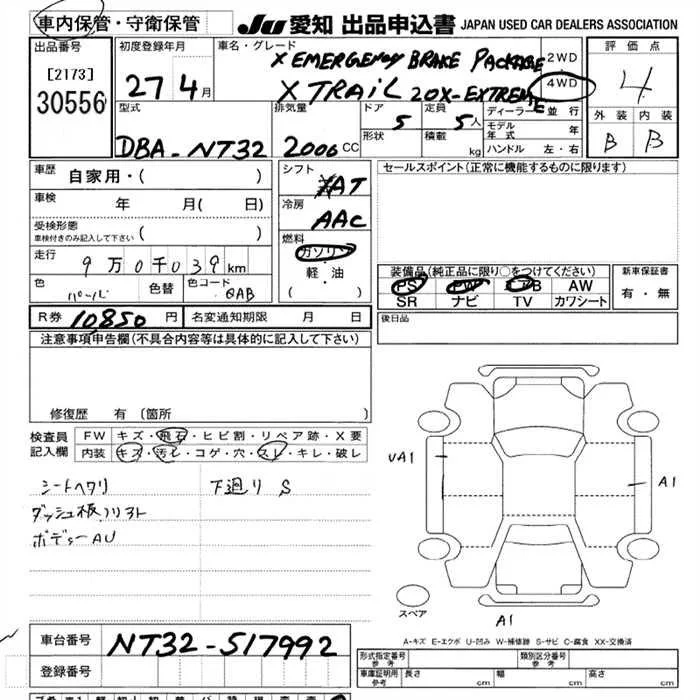 車内保管・守衛保管
JU 愛知 出品申込書 JAPAN USED CAR DEALERS ASSOCIATION
出品番号
[2173]
30556
初度登録年月
27 4月
車名・グレード
X EMERGENCY BRAKE PACKAGE
X TRAIL 20X-EXTREME
2WD
4WD
評価点
4
外装 内装
B B
型式
DBA-NT32
排気量
2000CC
ドア
5
形状
定員
5人
積載 kg
ディーラー・並行
モデル年式 年
ハンドル 左・右
車歴 自家用・( )
車検 年 月( 日)
受検形態
車検付きのみ記入して下さい ( )
走行 9万0千039km
色 パール 色替 色コード QAB
シフト AT
冷房 AAC
燃料
ガソリン
・
軽・油
( ・ )
セールスポイント(正常に機能するものに限ります)
装備品(純正品に限り○をつけてください)
PS PW エアB AW
SR ナビ TV カワシート
新車保証書
有・無
R券 10850円 名変通知期限 月 日
後日品
注意事項申告欄(不具合内容等は具体的に記入して下さい)
修復歴 有(箇所 )
検査員記入欄
FW キズ・飛石・ヒビ割・リペア跡・X要
内装 キズ・汚レ・コゲ・穴・スレ・キレ・破レ
シートヘタリ 下廻り S
ダッシュ板ソリスト
ボデーAU
UA1
A1
スペア
A1
A-キズ E-エクボ U-凹み W-補修跡 S-サビ C-腐食 XX-交換済
車台番号 NT32-517992
登録番号
形式指定番号 参考
類別区分番号 参考
車庫証明用 参考
長さ cm 幅 cm 高さ cm